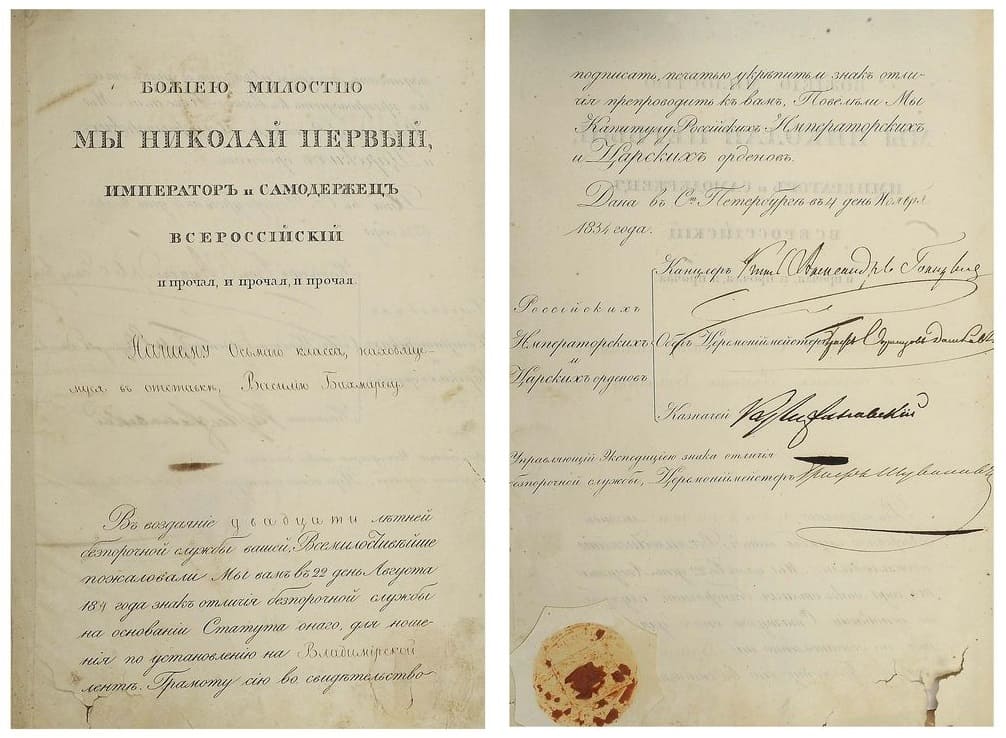 БОЖІЕЮ МИЛОСТІЮ
МЫ НИКОЛАЙ ПЕРВЫЙ,
ИМПЕРАТОРЪ и САМОДЕРЖЕЦЪ
ВСЕРОССІЙСКІЙ
и прочая, и прочая, и прочая.
Нашему Осьмаго класса, находяще-
муся въ отставкѣ, Василію
Въ воздаяніе двадцати лѣтней
безпорочной службы вашей, Всемилостивѣйше
пожаловали Мы вамъ въ 22 день Августа
183 года знакъ отличія безпорочной службы
на основаніи Статута онаго, для ноше-
нія по установленію на Владимірской
лентѣ. Грамоту сію во свидѣтельство
подписать, печатью укрѣпить и знакъ отли-
чія препроводить къ вамъ, Повелѣли Мы
Капитулу Россійскихъ Императорскихъ
и Царскихъ орденовъ.
Дана въ С. Петербургѣ въ 4 день Ноября
1834 года.
Канцлеръ Князь Александръ Голицынъ
Россійскихъ
Императорскихъ Церемоніймейстеръ Графъ
и
Царскихъ орденовъ
Казначей
Управляющій Экспедиціею знака отличія
безпорочной службы, Церемоніймейстеръ